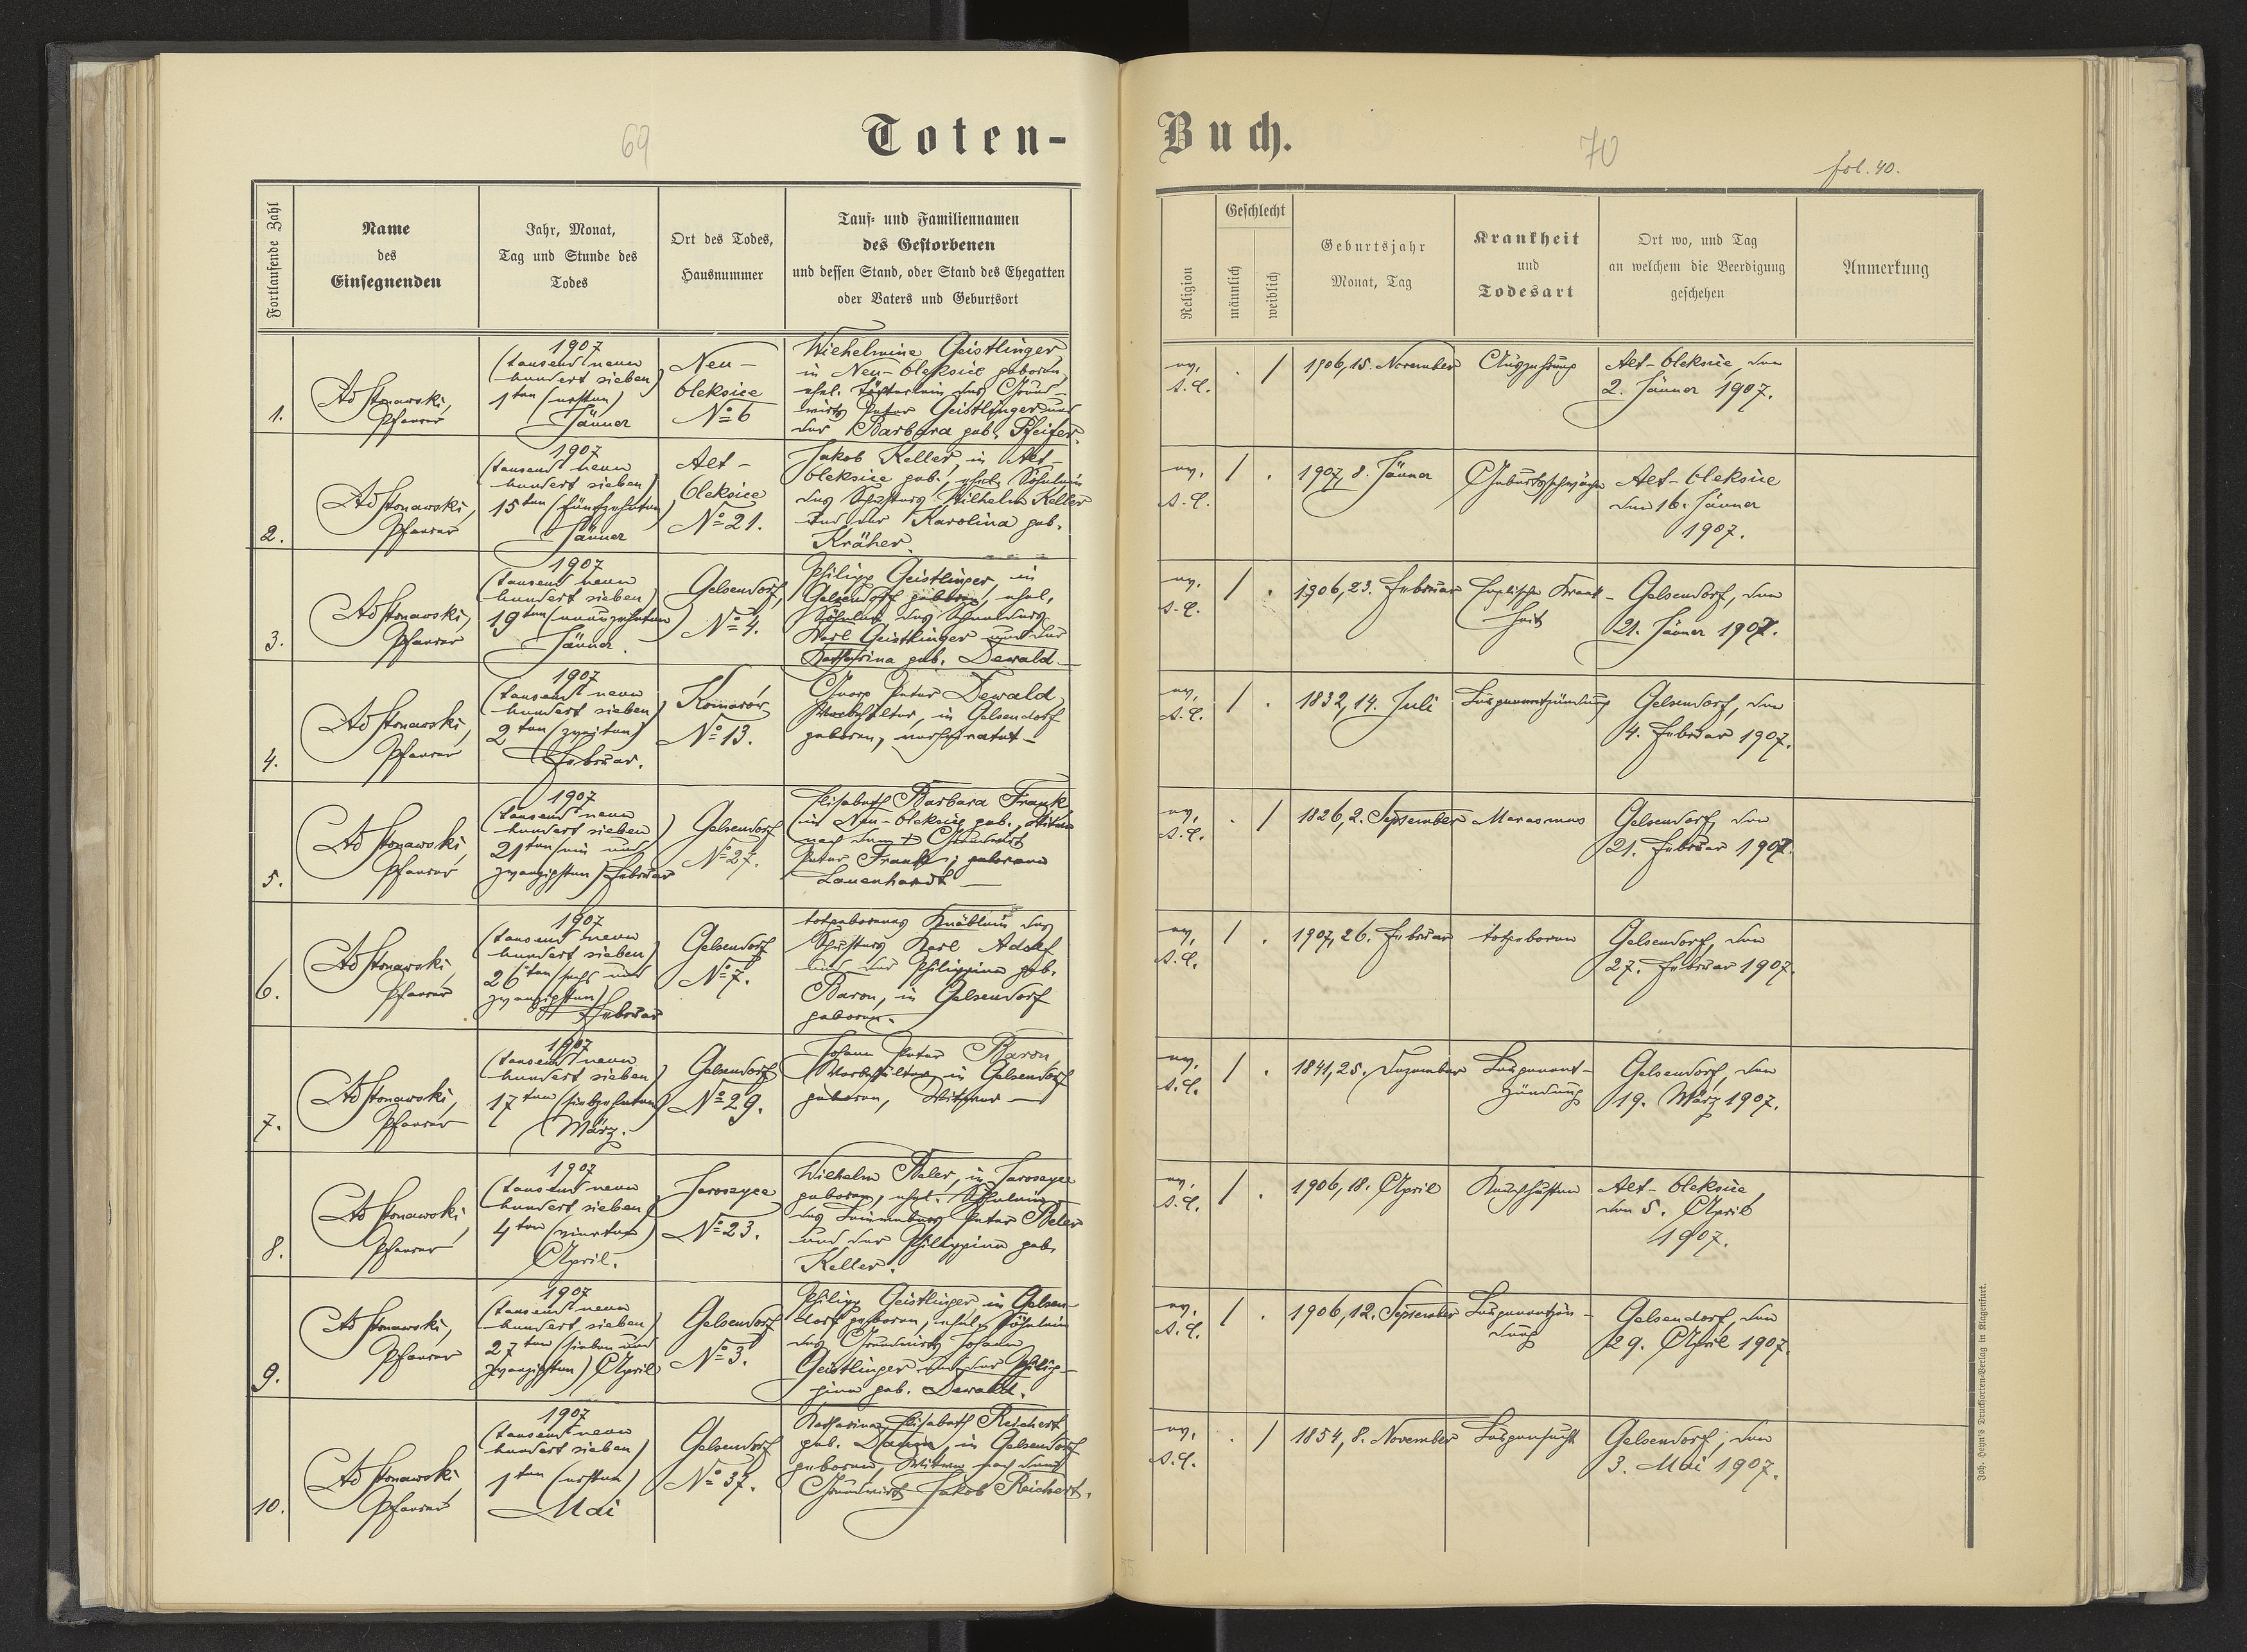 69
Toten-
Fortlaufende Zahl
Name
des
Einsegnenden
Jahr, Monat,
Tag und Stunde des
Todes
Ort des Todes,
Hausnummer
Tauf- und Familiennamen
des Gestorbenen
und dessen Stand, oder Stand des Ehegatten
oder Vaters und Geburtsort
1.
Ad Stonawski,
Pfarrer
1907
(tausend neun
hundert sieben)
1ten (ersten)
Jänner
Neu-
Oleksice
No 6
Wilhelmine Geistlinger,
in Neu-Oleksice geboren,
ehel. Töchterlein des Grund-
wirts Peter Geistlinger und
der Barbara geb. Pfeifer.
2.
Ad Stonawski,
Pfarrer
1907
(tausend neun
hundert sieben)
15ten (fünfzehnten)
Jänner
Alt-
Oleksice
No 21.
Jakob Keller, in Alt-
Oleksice geb., ehel. Söhnlein
des Schusters Wilhelm Keller
und der Karolina geb.
Kräher.
3.
Ad Stonawski,
Pfarrer
1907
(tausend neun
hundert sieben)
19ten (neunzehnten)
Jänner.
Gelsendorf,
No 4.
Philipp Geistlinger, in
Gelsendorf geboren, ehel.
Söhnlein des Schneiders
Karl Geistlinger und der
Katharina geb. Dewald
4.
Ad Stonawski,
Pfarrer
1907
(tausend neun
hundert sieben)
2ten (zweiten)
Februar.
Komarów
No 13.
Georg Peter Dewald,
Vorbehalter, in Gelsendorf
geboren, verheiratet
5.
Ad Stonawski,
Pfarrer
1907
(tausend neun
hundert sieben)
21ten (ein und
zwanzigsten) Februar
Gelsendorf
No 27.
Elisabeth Barbara Frank
in Neu-Oleksice geb., Witwe
nach dem + Grundwirt
Peter Frank, geborene
Lauenhardt
6.
Ad Stonawski,
Pfarrer
1907
(tausend neun
hundert sieben)
26ten (sechs und
zwanzigsten)
Februar
Gelsendorf
No 7.
totgeborenes Knäblein des
Schusters Karl Adolf
und der Philippina geb.
Baron, in Gelsendorf
geboren.
7.
Ad Stonawski,
Pfarrer
1907
(tausend neun
hundert sieben)
17ten (siebzehnten)
März.
Gelsendorf
No 29.
Johann Peter Baron,
Vorbehalter, in Gelsendorf
geboren, Witwer
8.
Ad Stonawski,
Pfarrer
1907
(tausend neun
hundert sieben)
4ten (vierten)
April.
Jaroszyce
No 23.
Wilhelm Beler, in Jaroszyce
geboren, ehel. Söhnlein
des Peter Beler
und der Philippina geb.
Keller.
9.
Ad Stonawski,
Pfarrer
1907
(tausend neun
hundert sieben)
27ten (sieben und
zwanzigsten) April
Gelsendorf
No 3.
Philipp Geistlinger, in Gelsen-
dorf geboren, ehel. Söhnlein
des Grundwirts Johann
Geistlinger und der Philip-
pina geb. Dewald.
10.
Ad Stonawski
Pfarrer
1907
(tausend neun
hundert sieben)
1ten (ersten)
Mai
Gelsendorf
No 37.
Katharina Elisabeth Reichert
geb. in Gelsendorf
geboren, Witwe nach dem
Grundwirt Jakob Reichert.
Buch.
70
fol. 40.
Religion
Geschlecht
männlich
weiblich
Geburtsjahr
Monat, Tag
Krankheit
und
Todesart
Ort wo, und Tag
an welchem die Beerdigung
geschehen
Anmerkung
ev.
A.C.
. /
1906, 15. November
Auszehrung
Alt-Oleksice, den
2. Jänner 1907.
ev.
A.C.
/ .
1907, 8. Jänner
Geburtsschwäche
Alt-Oleksice
den 16. Jänner
1907.
ev.
A.C.
/ .
1906, 23. Februar
Englische Krank-
heit
Gelsendorf, den
21. Jänner 1907.
ev.
A.C.
/ .
1832, 14. Juli
Lungenentzündung
Gelsendorf, den
4. Februar 1907.
ev.
A.C.
. /
1826, 2. September
Marasmus
Gelsendorf, den
21. Februar 1907.
ev.
A.C.
/ .
1907, 26. Februar
totgeboren
Gelsendorf, den
27. Februar 1907.
ev.
A.C.
/ .
1841, 25. Dezember
Lungenent-
zündung
Gelsendorf, den
19. März 1907.
ev.
A.C.
/ .
1906, 18. April
Keuchhusten
Alt-Oleksice,
den 5. April
1907.
ev.
A.C.
/ .
1906, 12. September
Lungenentzün-
dung
Gelsendorf, den
29. April 1907.
ev.
A.C.
. /
1854, 8. November
Lungensucht
Gelsendorf, den
3. Mai 1907.
Joh. Heyn's Drucksorten-Verlag in Klagenfurt.